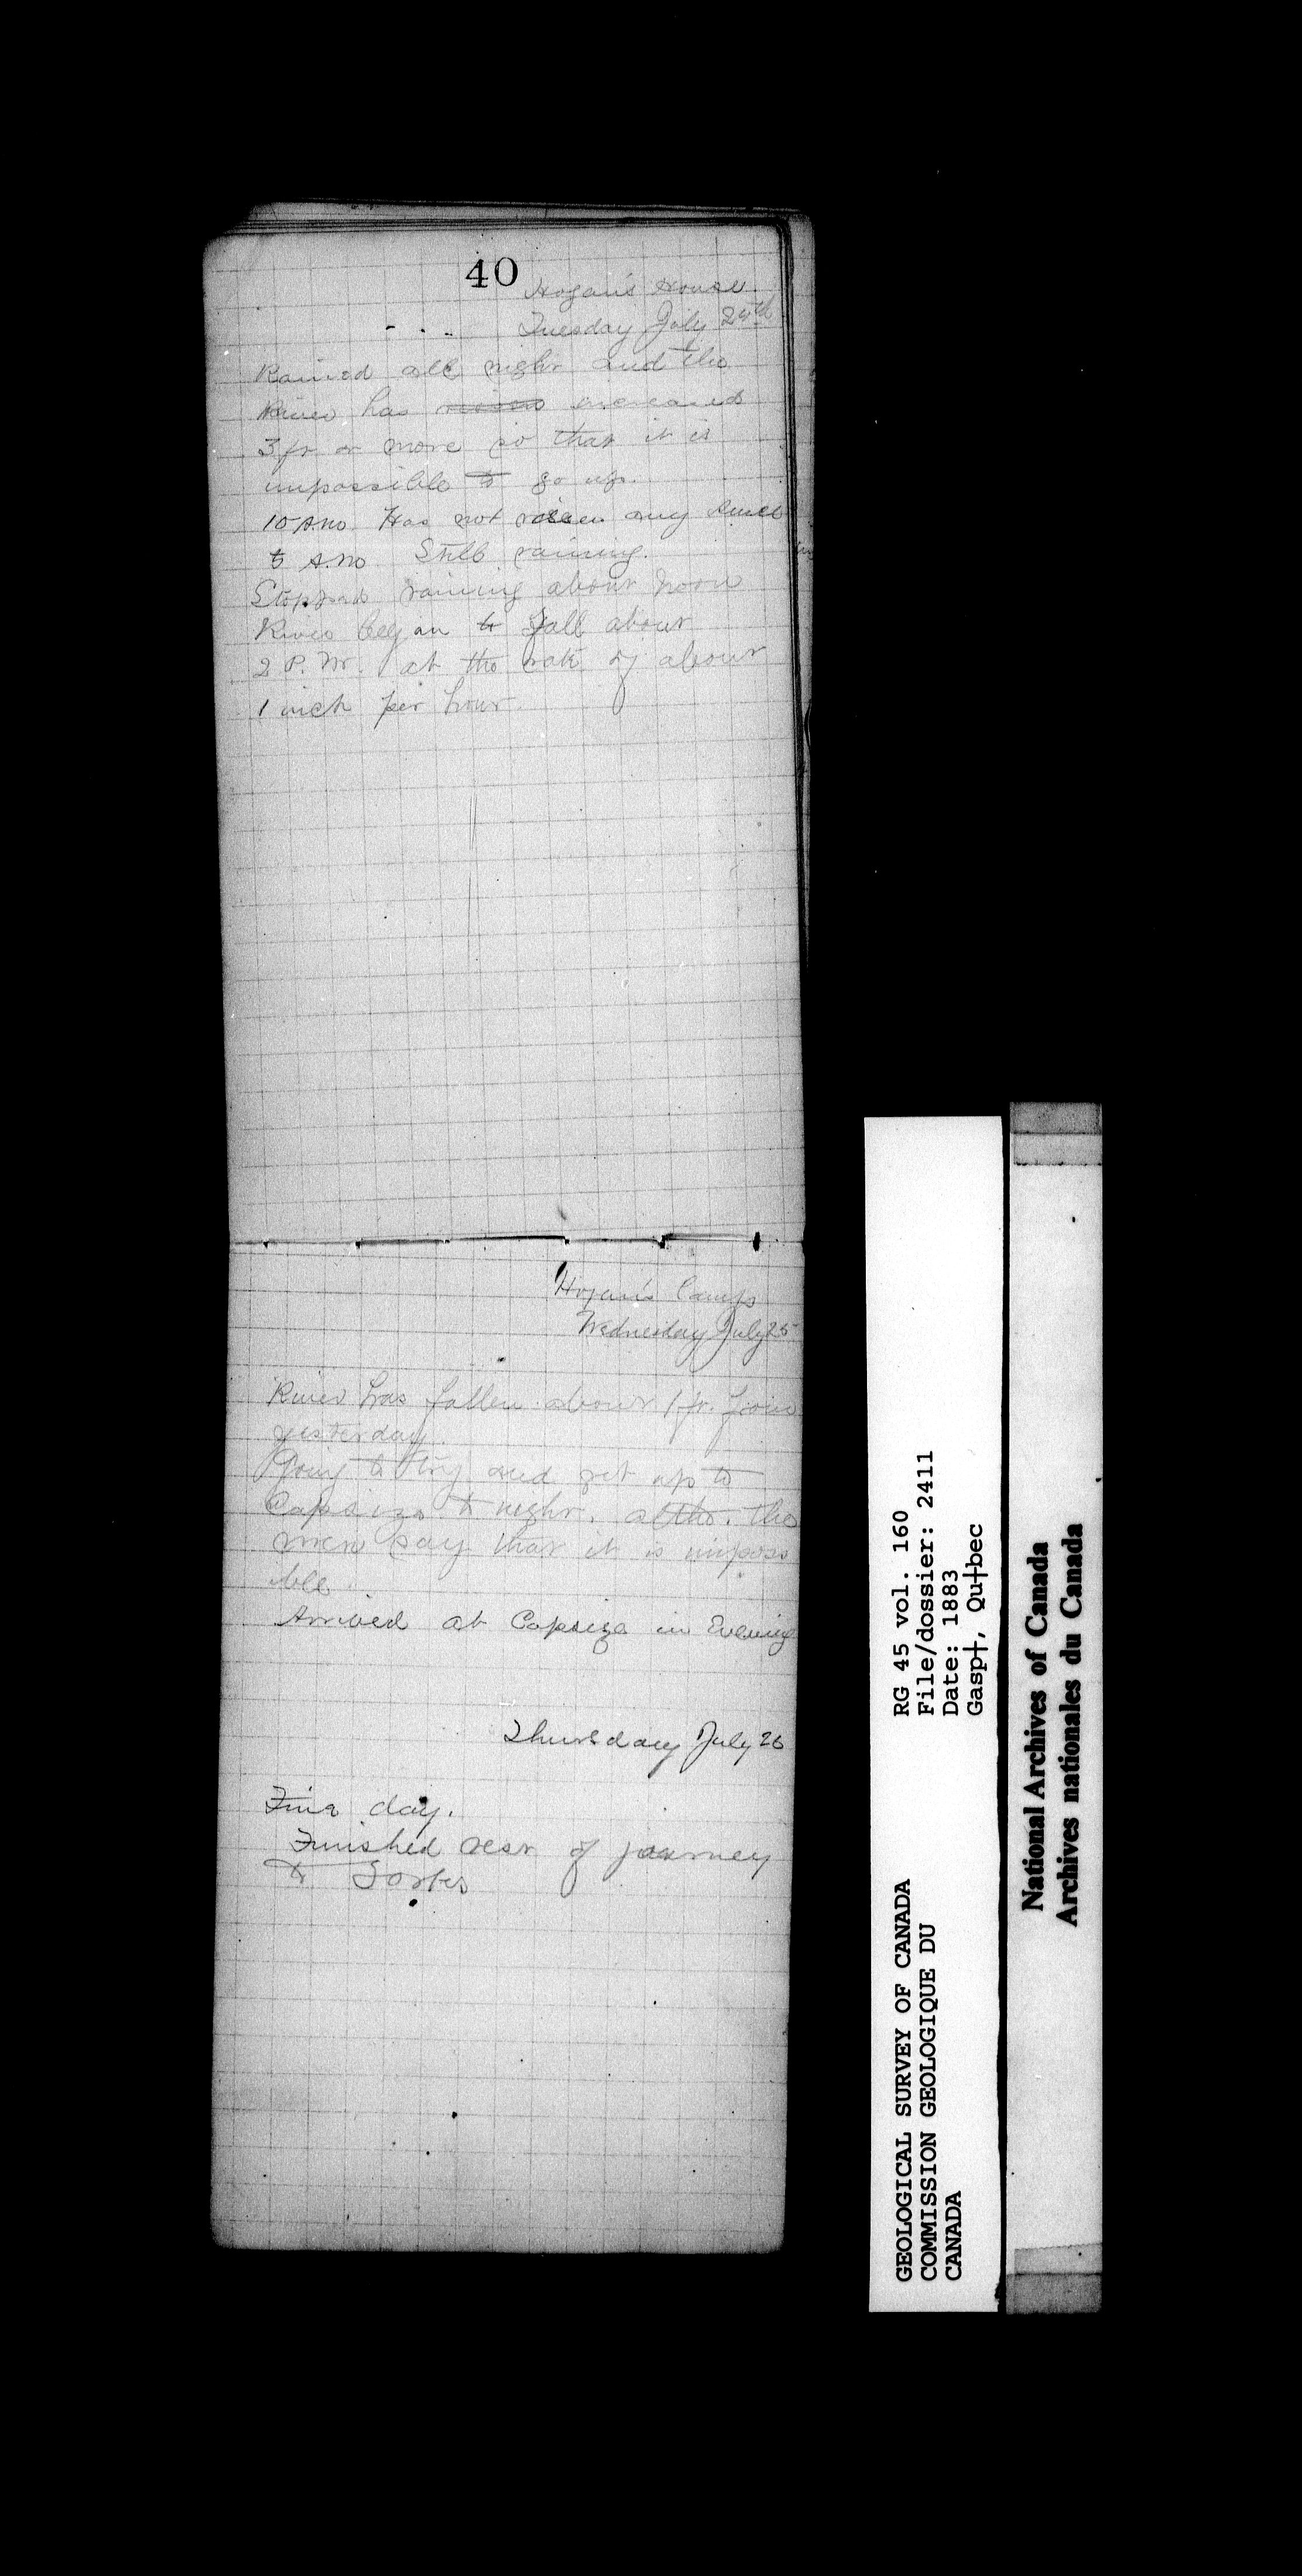 40
Hogan's House.
Tuesday July 24th
Rained all night and the
River has risen increased
3 ft or more so that it is
impossible to go up.
10 A.M. Has not risen any since
5 A.M. Still raining.
Stopped raining about noon
River began to fall about
2 P.M. at the rate of about
1 inch per hour.
Hogan's Camp
Wednesday July 25
River has fallen about 1 ft. from
yesterday.
Going to try and get up to
Capsize to night. altho. the
men say that it is imposs
ible.
Arrived at Capsize in Evening
Thursday July 26
Fine day.
Finished rest of journey
to Forks
GEOLOGICAL SURVEY OF CANADA
COMMISSION GEOLOGIQUE DU
CANADA
RG 45 vol. 160
File/dossier: 2411
Date: 1883
Gasp†, Qu†bec
National Archives of Canada
Archives nationales du Canada